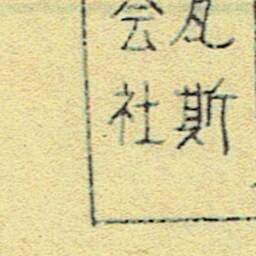 瓦斯
会社